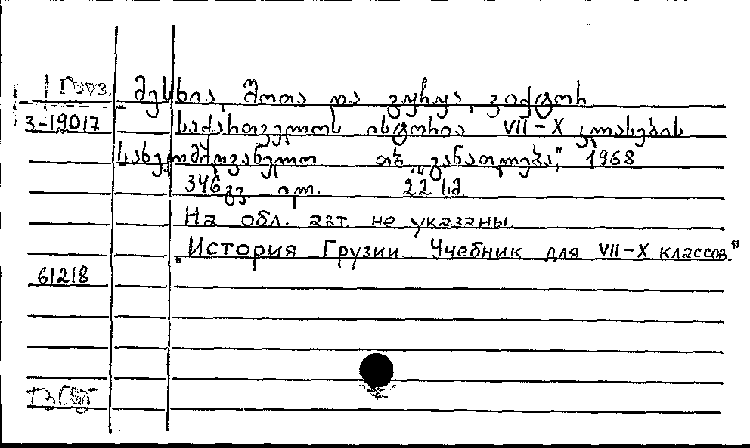 Груз. მესხია, შოთა და გუჩუა, ვიქტორ
3-19017 საქართველოს ისტორია VII-X კლასების
სახელმძღვანელო თბ. „განათლება", 1968
346 გვ. ილ. 22 სმ
На обл. авт. не указаны.
„История Грузии Учебник для VII-X классов"
61218